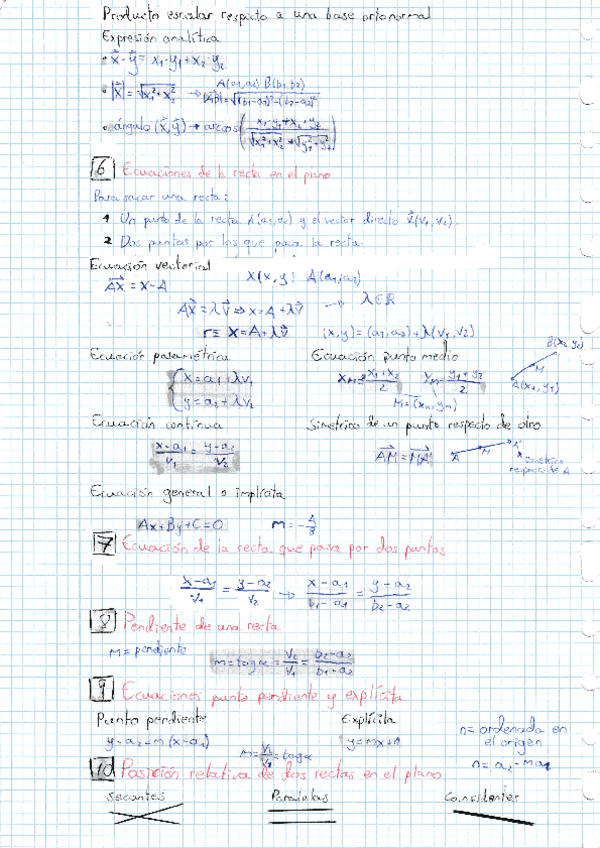 Producto escalar respecto a una base ortonormal
Expresión analítica
• x⃗·y⃗ = x₁·y₁+x₂·y₂
• |x⃗| = √(x₁²+x₂²) → A(a₁,a₂) B(b₁,b₂)
|AB⃗| = √((b₁-a₁)²-(b₂-a₂)²)
• ángulo (x⃗,y⃗) → arcos ((x₁·y₁+x₂·y₂)/(√(x₁²+x₂²)·√(y₁²+y₂²)))
6 Ecuaciones de la recta en el plano
Para sacar una recta:
1 Un punto de la recta A(a₁,a₂) y el vector directo v⃗(v₁,v₂).
2 Dos puntos por los que pasa la recta.
Ecuación vectorial
AX⃗ = X-A
X(x,y) A(a₁,a₂)
AX⃗ = λv⃗ ⇒ x=A+λv⃗ → λ∈ℝ
r≡ X=A+λv⃗ (x,y) = (a₁,a₂)+λ(v₁,v₂)
Ecuación paramétrica
{x=a₁+λv₁
{y=a₂+λv₂
Ecuación punto medio
x_M = (x₁+x₂)/2 y_M = (y₁+y₂)/2
M=(x_M,y_M)
B(x₂,y₂)
M
A(x₁,y₁)
Ecuación continua
(x-a₁)/v₁ = (y-a₂)/v₂
Simétrico de un punto respecto de otro
AM⃗ = MA'⃗
A M A'
simétrico
respecto de A
Ecuación general o implícita
Ax+By+C=0 m=-A/B
7 Ecuación de la recta que pasa por dos puntos
(x-a₁)/v₁ = (y-a₂)/v₂ → (x-a₁)/(b₁-a₁) = (y-a₂)/(b₂-a₂)
8 Pendiente de una recta
m=pendiente
m=tagα = v₂/v₁ = (b₂-a₂)/(b₁-a₁)
9 Ecuaciones punto pendiente y explícita
Punto pendiente
y-a₂=m(x-a₁)
m=v₁/v₂=tagα
Explícita
y=mx+n
n=ordenada en
el origen
n=a₂-ma₁
10 Posición relativa de dos rectas en el plano
Secantes Paralelas Coincidentes